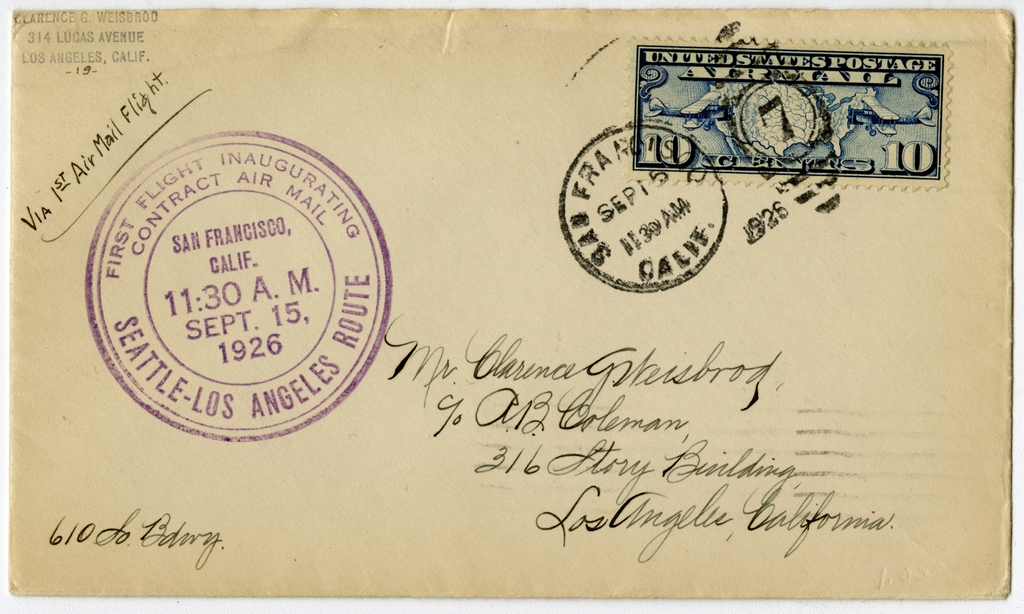 CLARENCE G. WEISBROD
314 LUCAS AVENUE
LOS ANGELES, CALIF.
-19-
VIA 1ST Air Mail Flight.
FIRST FLIGHT INAUGURATING
CONTRACT AIR MAIL
SAN FRANCISCO,
CALIF.
11:30 A. M.
SEPT. 15,
1926
SEATTLE-LOS ANGELES ROUTE
UNITED STATES POSTAGE
AIR MAIL
10 CENTS 10
SAN FRANCISCO
SEPT 15
11:30 AM
CALIF.
1926
7
Mr. Clarence G Weisbrod,
c/o A.B. Coleman,
316 Story Building,
Los Angeles, California.
610 So. Bdwy.